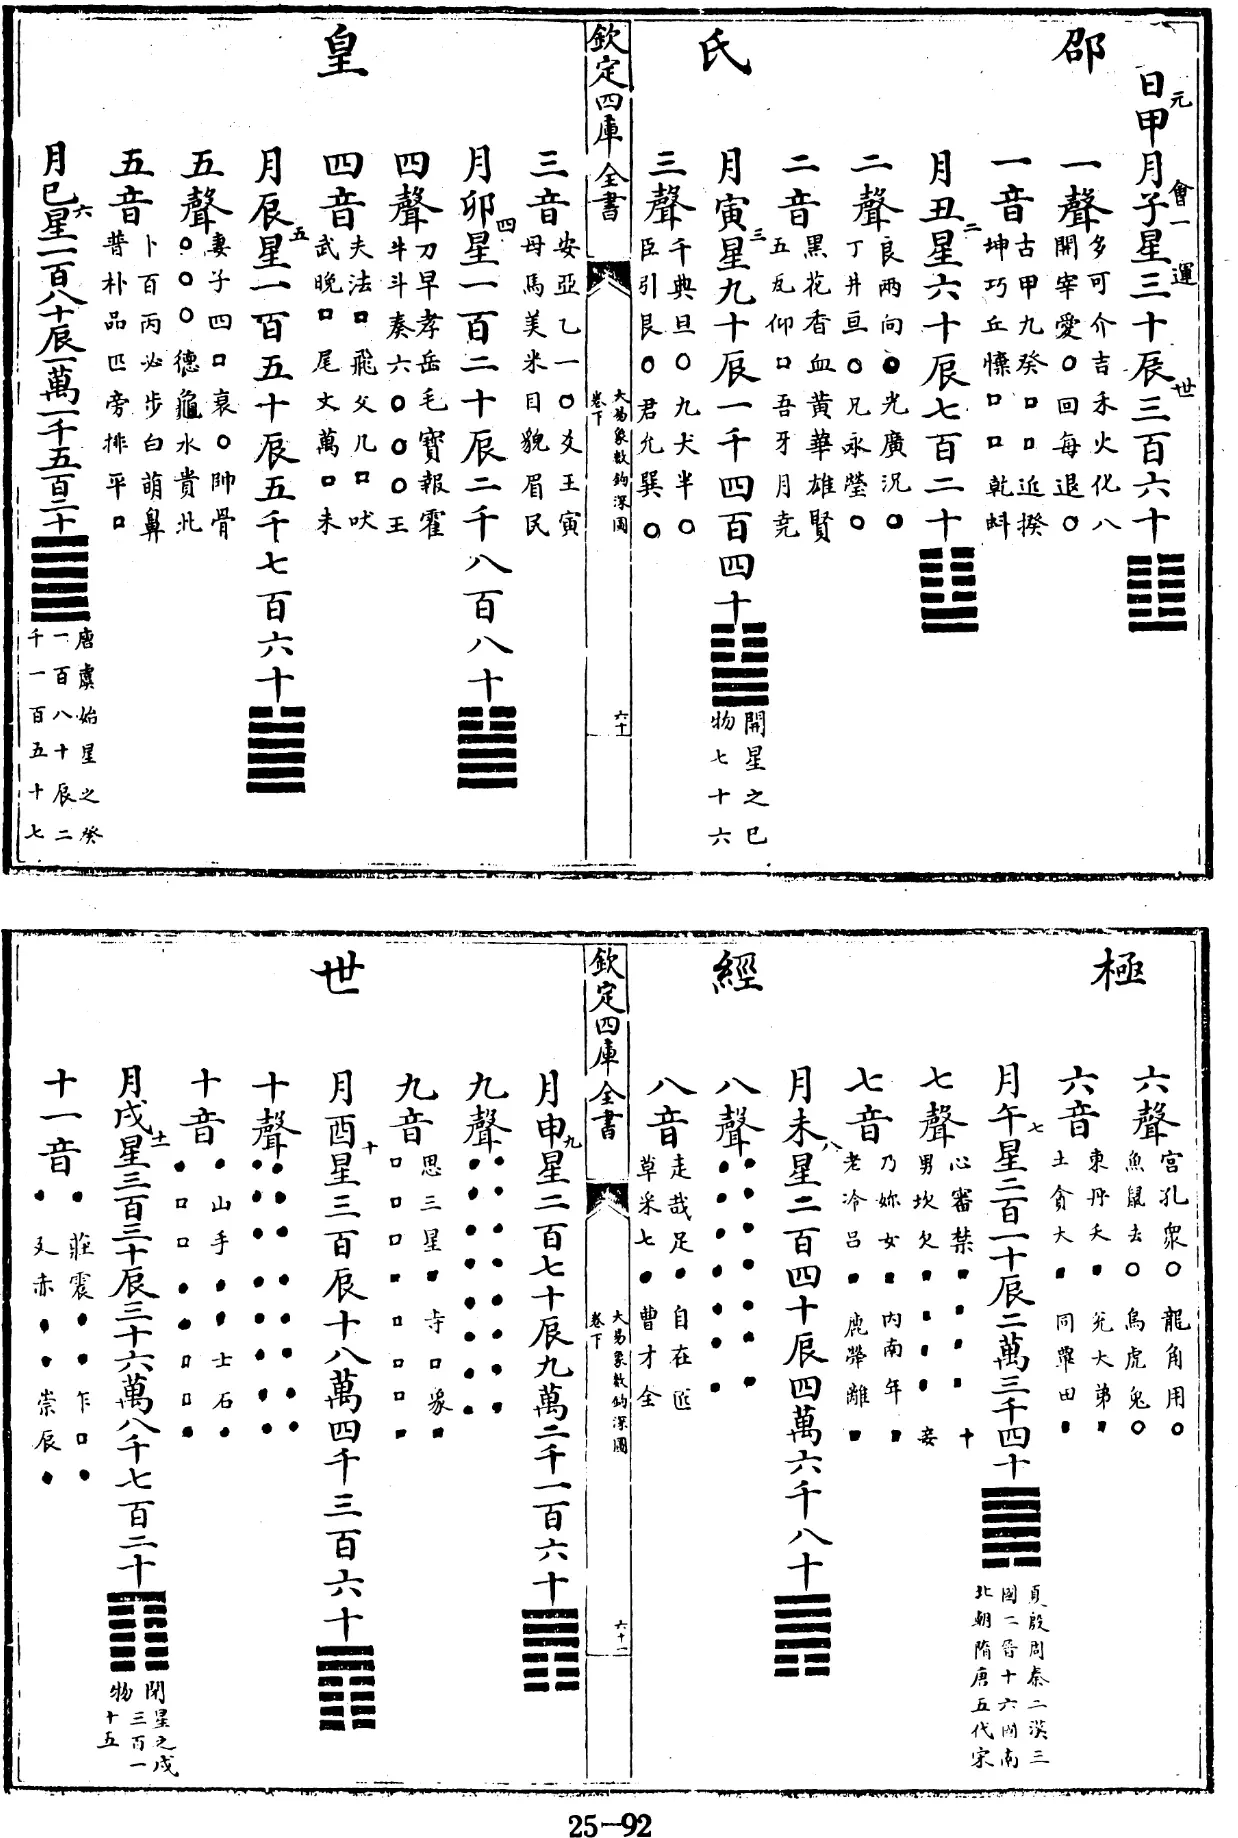 邵
氏
皇
日甲元月子會一星運三十辰世三百六十
一聲
多可介吉禾火化八
開宰愛○回每退○
一音
古甲九癸□□近揆
坤巧丘□□乾蚪
月丑二星六十辰七百二十
二聲
良兩向●光廣況○
丁井亘○兄永瑩○
二音
黑花香血黃華雄賢
五瓦仰□吾牙月堯
月寅三星九十辰一千四百四十
開星之巳
物七十六
三聲
千典旦○九犬半○
臣引艮○君允巽○
欽定四庫全書
大易象數鈎深圖
卷下
六十
三音
安亞乙一○爻王寅
母馬美米目貌眉民
月卯四星一百二十辰二千八百八十
四聲
刀早孝岳毛寶報霍
牛斗奏六○○○王
四音
夫法□飛父凡□吠
武晚□尾文萬□未
月辰五星一百五十辰五千七百六十
五聲
妻子四□衰○帥骨
○○○德龜水貴北
五音
卜百丙必步白萌鼻
普朴品匹旁排平□
月巳六星一百八十辰一萬一千五百二十
唐虞始星之癸
一百八十辰二
千一百五十七
極
經
世
六聲
宮孔眾○龍角用○
魚鼠去○烏虎兔○
六音
東丹夭■兊大弟■
土貪大■同覃田■
月午七星二百一十辰二萬三千四十
夏殷周秦二漢三
國二晉十六國南
北朝隋唐五代宋
七聲
心審禁■■■■十
男坎欠■■■■妾
七音
乃妳女■內南年■
老冷呂■鹿犖離■
月未八星二百四十辰四萬六千八十
八聲
●●●●●●●
●●●●●●●
八音
走哉足●自在匠
草采七●曹才全
欽定四庫全書
大易象數鈎深圖
卷下
六十一
月申九星二百七十辰九萬二千一百六十
九聲
●●●●●●●●
●●●●●●●●
九音
思三星■寺□象■
□□□■□□□■
月酉十星三百辰十八萬四千三百六十
十聲
●●●●●●●●
●●●●●●●●
十音
●山手●●士石●
●□□●●□□●
月戌十一星三百三十辰三十六萬八千七百二十
閉星之戌
三百一
物十五
十一音
●莊震●●乍□●
●叉赤●●崇辰●
25-92